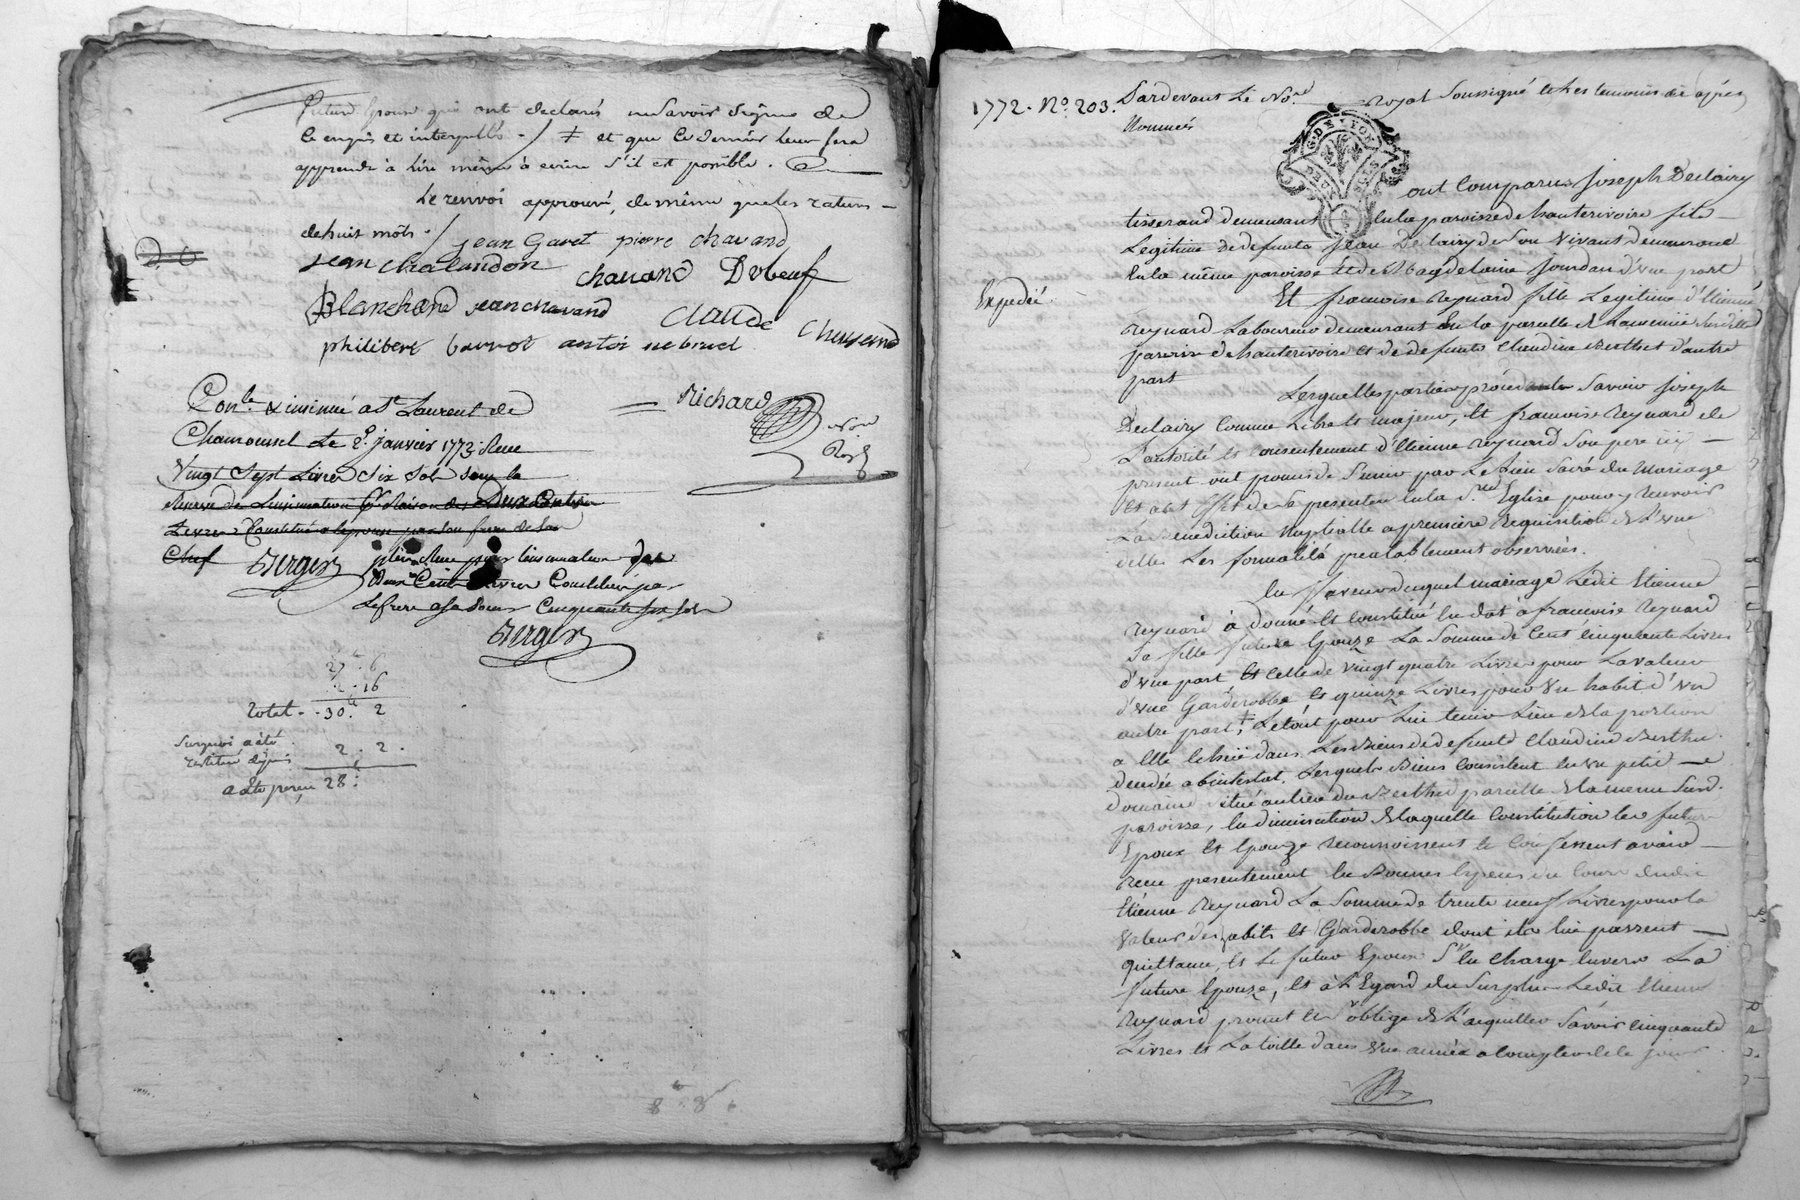 futur Epoux qui ont declarés ne Savoir Signer de
ce enquis et interpellés ./ ≠ et que ce dernier leur fera
apprendre à lire même à ecrire s'il est possible.
Le renvoi approuvé, de même que les ratures
de huit mots ./
jean Garet pierre chavand
jean chalandon chavand Dubeuf
Blanchard jean chavand Claude
philibert barrot
Richard
Con.lé & insinué a St Laurent de
Chamousset Le 2. janvier 1773. Reçu
Vingt Sept Livres Six Sols sous la
Reserve de L'insinuation
Livres Constitué a lepouse par son frere de son
Chef Berger
Deux Cents Livres Constitués par
Le frere a sa Soeur Cinquante six sols
Berger
27 . 6
2 . 16
Total . . 30 . 2
Surquoi a été
restitué depuis 2 . 2 .
a été perçu 28 :
8 . 8
1772. No. 203. Pardevant Le No.re Royal Soussigné et les temoins ci après
Nommés
G. DE LYON
DEUX SOLS
ont Comparus Joseph Declairy
tisserand demeurant en la paroisse de hauterivoire fils
Legitime de defunts Jean Declairy de Son Vivant demeurant
En la même paroisse Et de Magdelaine Jourdan d'une part
Expedié.
Et francoise Reynard fille Legitime d'Etienne
Reynard Laboureur demeurant En la parcelle de
paroisse de hauterivoire Et de defunte Claudine Berthet d'autre
part
Lesquelles parties procedantes Savoir Joseph
Declairy Comme Libre et majeur, Et francoise Reynard de
L'autorité et Consentement d'Etienne Reynard Son pere icy
present ont promis de S'unir par Le Lien Sacré du Mariage
Et a cet Effet de Se presenter en la S.te Eglise pour y recevoir
La Benediction Nuptialle a premiere Requisition de L'une
d'elles Les formalités prealablement observées.
En faveur duquel mariage Ledit Etienne
Reynard à donné Et Constitué En dot à francoise Reynard
Sa fille future Epouze La Somme de Cent Cinquante Livres
d'une part Et Celle de Vingt quatre Livres pour La valeur
d'une Garderobbe Et quinze Livres pour Un habit d'une
autre part ‡ Le tout pour Lui tenir Lieu de La portion
a Elle Echeüe dans Les Biens de defunte Claudine Berthet
decedée abintestat, Lesquels Biens Consistent En un petit
domaine situé au Lieu du Berthet parcelle de
paroisse, En diminution de Laquelle Constitution les futurs
Epoux Et Epouze reconnoissent et Confessent avoir
Recu presentement En Bonnes Especes du Cours dudit
Etienne Reynard La Somme de trente neuf Livres pour la
Valeur des habits Et Garderobbe dont ils lui passent
quittance, Et Le futur Epoux S'en charge Envers La
future Epouze, Et à L'Egard du Surplus Ledit Etienne
Reynard promet Et S'oblige de L'acquitter Savoir Cinquante
Livres Et La toille dans Une année a Compter de Ce jour